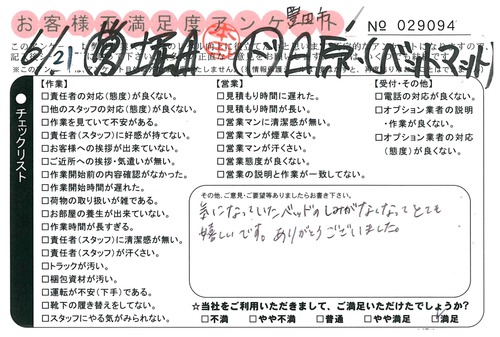 お客様満足度アンケ
豊田市
No 029094
6/21
(ベッドマット)
チェックリスト
【作業】
□責任者の対応(態度)が良くない。
□他のスタッフの対応(態度)が良くない。
□作業を見ていて不安がある。
□責任者(スタッフ)に好感が持てない。
□お客様への挨拶が出来ていない。
□ご近所への挨拶・気遣いが無い。
□作業開始前の内容確認がなかった。
□作業開始時間が遅れた。
□荷物の取り扱いが雑である。
□お部屋の養生が出来ていない。
□作業時間が長すぎる。
□責任者(スタッフ)に清潔感が無い。
□責任者(スタッフ)が汗くさい。
□トラックが汚い。
□梱包資材が汚い。
□運転が不安(下手)である。
□靴下の履き替えをしてない。
□スタッフにやる気がみられない。
【営業】
□見積もり時間に遅れた。
□見積もり時間が長い。
□営業マンに清潔感が無い。
□営業マンが煙草くさい。
□営業マンが汗くさい。
□営業態度が良くない。
□営業の説明と作業が一致してない。
【受付・その他】
□電話の対応が良くない。
□オプション業者の説明
・作業が良くない。
□オプション業者の対応
(態度)が良くない。
その他、ご意見・ご要望等ありましたらお書き下さい。
気になっていたベッドのしみがなくなってとても
嬉しいです。ありがとうございました。
☆当社をご利用いただきまして、ご満足いただけたでしょうか?
□不満 □やや不満 □普通 □やや満足 □満足